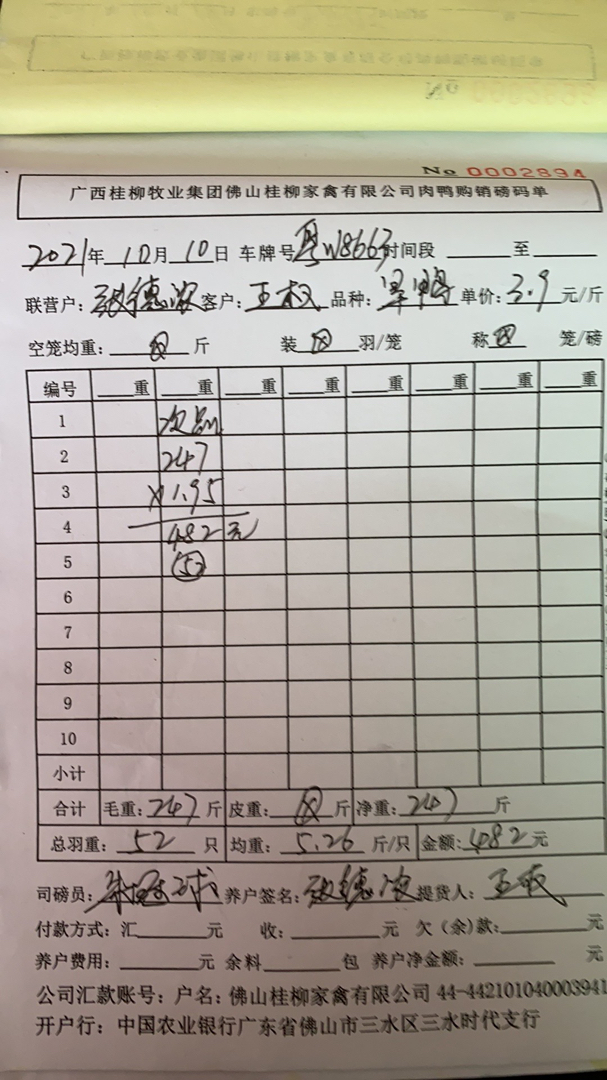 No 0002894
广西桂柳牧业集团佛山桂柳家禽有限公司肉鸭购销磅码单
2021年10月10日 车牌号粤W8663时间段 至
联营户: 德 客户: 王权 品种: 鸭 单价: 3.9 元/斤
空笼均重: 斤 装 羽/笼 称 笼/磅
编号 重 重 重 重 重 重 重 重
1 次品
2 247
3 X1.95
4 482元
5 52
6
7
8
9
10
小计
合计 毛重: 247 斤 皮重: 斤 净重: 247 斤
总羽重: 52 只 均重: 5.26 斤/只 金额: 482元
司磅员: 养户签名: 德 提货人: 王权
付款方式: 汇 元 收: 元 欠(余)款: 元
养户费用: 元 余料 包 养户净金额: 元
公司汇款账号: 户名: 佛山桂柳家禽有限公司 44-442101040003941
开户行: 中国农业银行广东省佛山市三水区三水时代支行